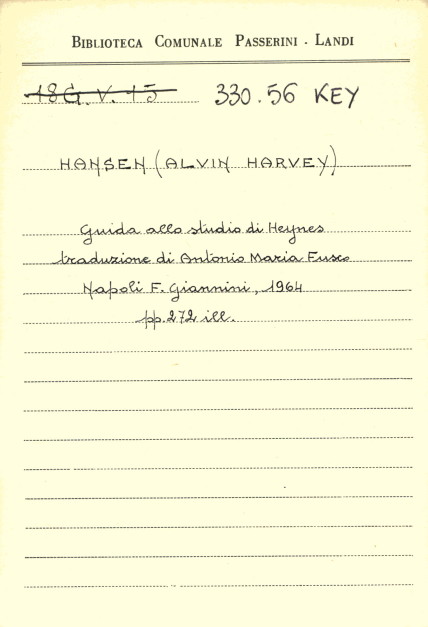 BIBLIOTECA COMUNALE PASSERINI - LANDI
18G. V. 15 330.56 KEY
HANSEN (ALVIN HARVEY)
Guida allo studio di Heynes
traduzione di Antonio Maria Fusco
Napoli F. Giannini, 1964
pp. 272 ill.